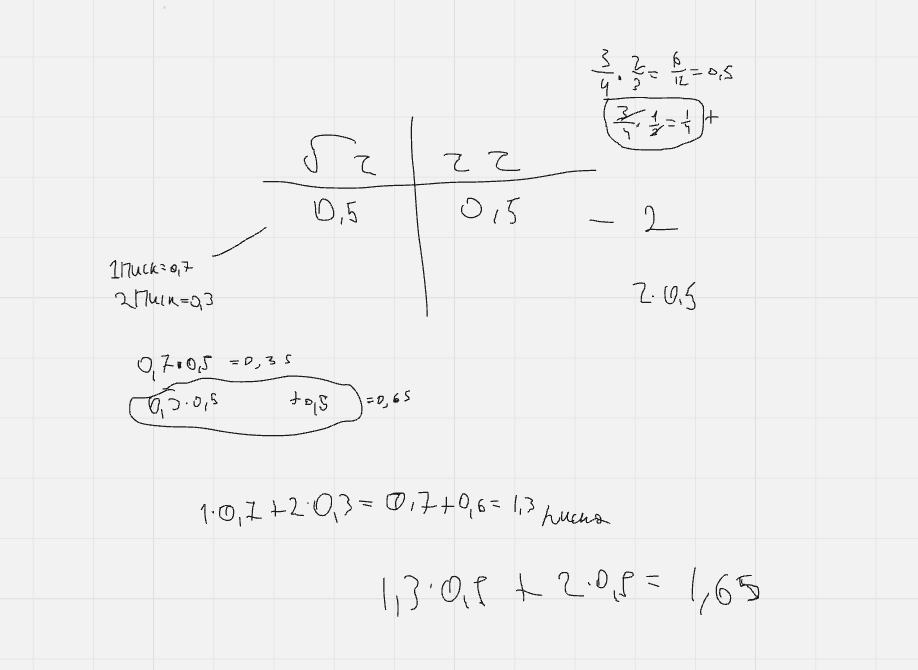 3/4 · 2/3 = 6/12 = 0,5
3/4 · 1/3 = 1/4 +
0,5 0,5 — 2
1 писк = 0,7
2 писк = 0,3
2 · 0,5
0,7 · 0,5 = 0,35
0,3 · 0,5 + 0,5 = 0,65
1 · 0,7 + 2 · 0,3 = 0,7 + 0,6 = 1,3 писка
1,3 · 0,5 + 2 · 0,5 = 1,65